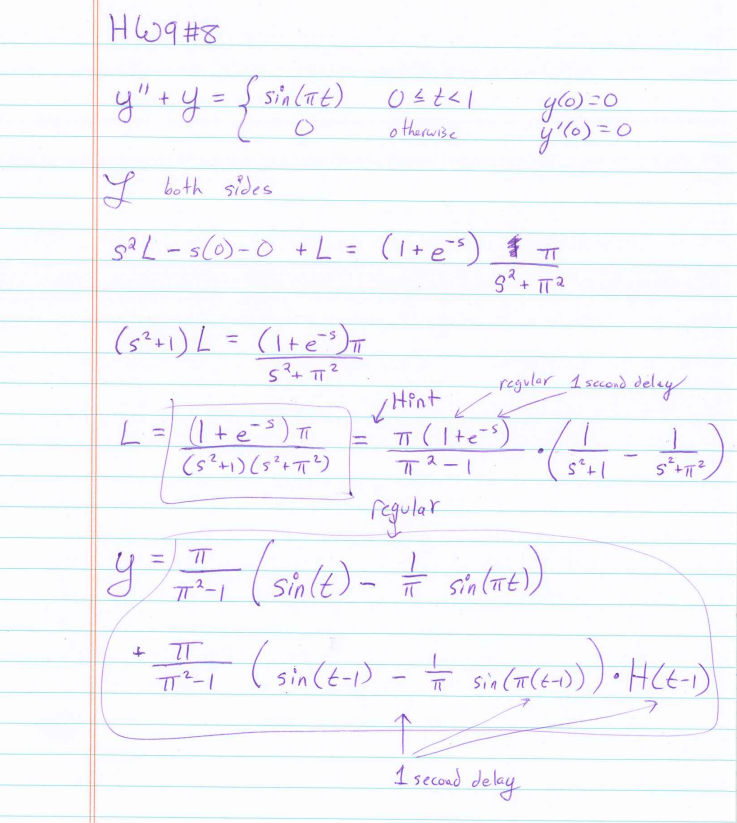 HW9#8
y'' + y = { sin(πt) 0 ≤ t < 1 y(0)=0
0 otherwise y'(0) = 0
ℒ both sides
s²L - s(0) - 0 + L = (1 + e^-s) π / (s² + π²)
(s²+1) L = (1 + e^-s)π / (s² + π²)
Hint regular 1 second delay
L = (1 + e^-s) π / ((s²+1)(s²+π²)) = π(1+e^-s) / (π² - 1) · (1/(s²+1) - 1/(s²+π²))
regular
y = π/(π²-1) (sin(t) - 1/π sin(πt))
+ π/(π²-1) (sin(t-1) - 1/π sin(π(t-1))) · H(t-1)
1 second delay